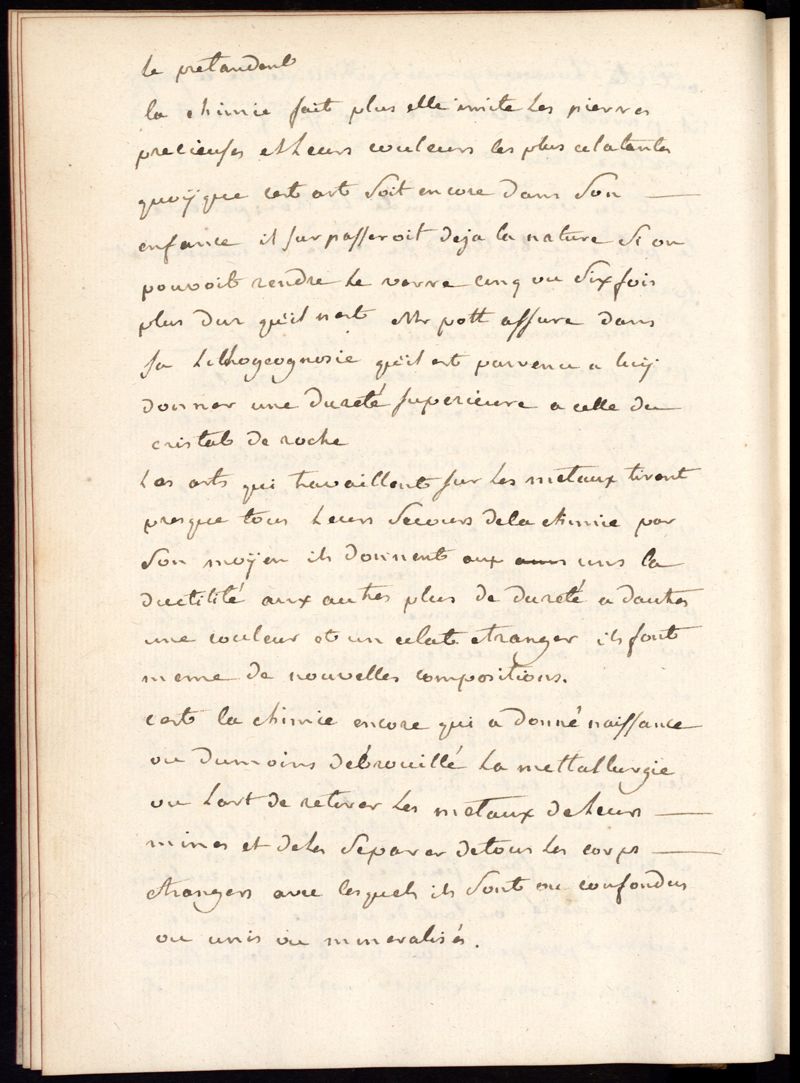 le pretandent
la chimie fait plus elle imite les pierres
precieuses et leurs couleurs les plus eclatantes
quoÿque cest art soit encore dans son —
enfance il surpasseroit deja la nature si on
pouvoit rendre le verre cinq ou six fois
plus dur qu'il n'est Mr pott assure dans
sa Lithogeognosie qu'il est parvenu a luij
donner une dureté superieure a celle du
cristal de roche
Les arts qui travaillent sur les metaux tirent
presque tous leurs secours de la chimie par
son moÿen ils donnent aux uns la
ductilité aux autres plus de dureté a dautres
une couleur et un eclat etranger ils font
meme de nouvelles compositions.
cest la chimie encore qui a donné naissance
ou dumoins débrouillé la mettallurgie
ou lart de retirer les metaux de leurs —
mines et de les separer de tous les corps —
etrangers avec lesquels ils sont ou confondus
ou unis ou mineralisés.